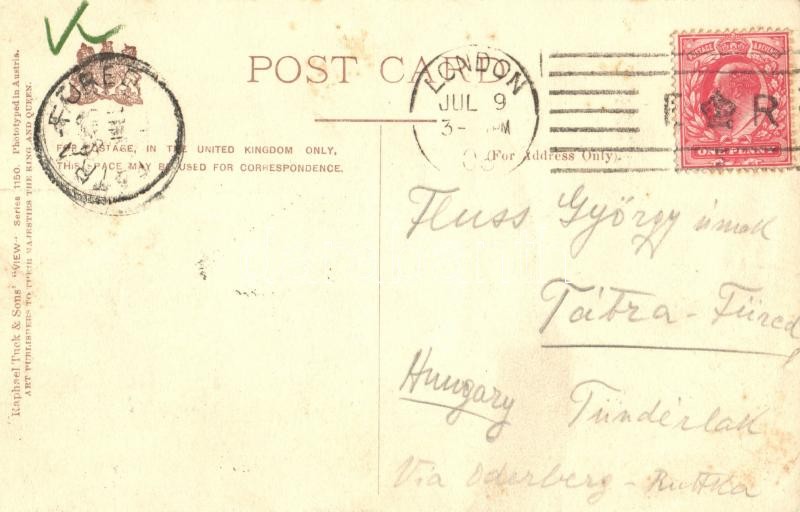 POST CARD
FOR POSTAGE, IN THE UNITED KINGDOM ONLY,
THIS SPACE MAY BE USED FOR CORRESPONDENCE.
(For Address Only)
Raphael Tuck & Sons' "VIEW" Series 1150. Phototyped in Austria.
ART PUBLISHERS TO THEIR MAJESTIES THE KING AND QUEEN.
LONDON
JUL 9
3- PM
R
POSTAGE & REVENUE
ONE PENNY
Fluss György úrnak
Tátra-Füred
Hungary Tündérlak
Via Oderberg-Ruttka